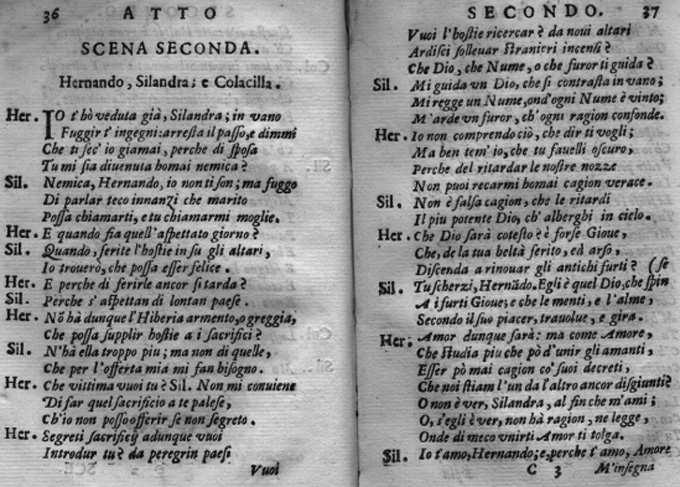 36 ATTO
SCENA SECONDA.
Hernando, Silandra; e Colacilla.
Her. IO t'hò veduta già, Silandra; in vano
Fuggir t'ingegni: arresta il passo, e dimmi
Che ti fec' io giamai, perche di sposa
Tu mi sia diuenuta homai nemica?
Sil. Nemica, Hernando, io non ti son; ma fuggo
Di parlar teco innanzi che marito
Possa chiamarti, e tu chiamarmi moglie.
Her. E quando fia quell'aspettato giorno?
Sil. Quando, ferite l'hostie in su gli altari,
Io trouerò, che possa esser felice.
Her. E perche di ferirle ancor si tarda?
Sil. Perche s'aspettan di lontan paese.
Her. Nō hà dunque l'Hiberia armento, o greggia,
Che possa supplir hostie a i sacrifici?
Sil. N'hà ella troppo piu; ma non di quelle,
Che per l'offerta mia mi fan bisogno.
Her. Che vittima vuoi tu? Sil. Non mi conuiene
Di far quel sacrificio a te palese,
Ch'io non posso offerir se non segreto.
Her. Segreti sacrificij adunque vuoi
Introdur tu? da peregrin paesi
Vuoi
SECONDO. 37
Vuoi l'hostie ricercar? da noui altari
Ardisci solleuar stranieri incensi?
Che Dio, che Nume, o che furor ti guida?
Sil. Mi guida vn Dio, che si contrasta in vano;
Mi regge vn Nume, ond'ogni Nume è vinto;
M'arde vn furor, ch'ogni ragion confonde.
Her. Io non comprendo ciò, che dir ti vogli;
Ma ben tem'io, che tu fauelli oscuro,
Perche del ritardar le nostre nozze
Non puoi recarmi homai cagion verace.
Sil. Non è falsa cagion, che le ritardi
Il piu potente Dio, ch'alberghi in cielo.
Her. Che Dio sarà cotesto? è forse Gioue,
Che, de la tua beltà ferito, ed arso,
Discenda a rinouar gli antichi furti? (se
Sil. Tu scherzi, Hernādo. Egli è quel Dio, che spin
A i furti Gioue; e che le menti, e l'alme,
Secondo il suo piacer, trauolue, e gira.
Her. Amor dunque sarà: ma come Amore,
Che studia piu che pò d'unir gli amanti,
Esser pò mai cagion co' suoi decreti,
Che noi stiam l'un da l'altro ancor disgiunti?
O non è ver, Silandra, al fin che m'ami;
O, s'egli è ver, non hà ragion, ne legge,
Onde di meco vnirti Amor ti tolga.
Sil. Io t'amo, Hernando; e, perche t'amo, Amore
C 3 M'insegna